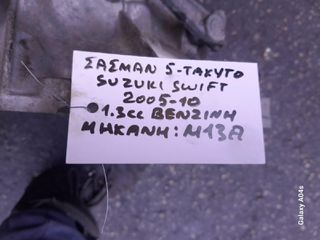 ΣΑΣΜΑΝ 5-ΤΑΧΥΤΟ
SUZUKI SWIFT
2005-10
1.3cc ΒΕΝΖΙΝΗ
ΜΗΚΑΝΗ: M13A
Galaxy A04s